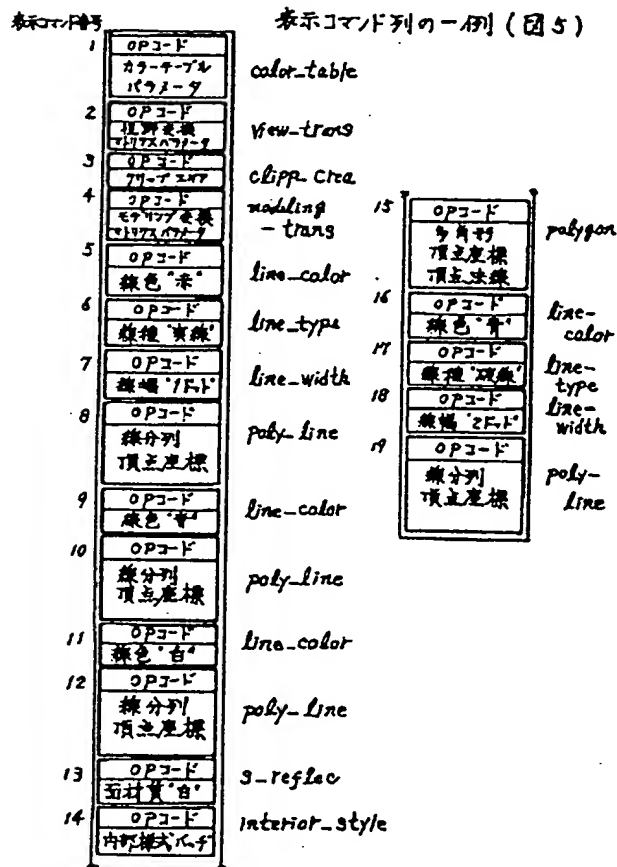 表示コマンド列の一例(図5)
表示コマンド番号
1
OPコード
カラーテーブル
パラメータ
color_table
2
OPコード
視野変換
マトリクスパラメータ
view_trans
3
OPコード
クリップエリア
4
OPコード
モデリング変換
マトリクスパラメータ
-trans
5
OPコード
線色"赤"
line_color
6
OPコード
線種"実線"
line_type
7
OPコード
線幅"1ドット"
line_width
8
OPコード
線分列
頂点座標
poly_line
9
OPコード
線色"青"
line_color
10
OPコード
線分列
頂点座標
poly_line
11
OPコード
線色"白"
line_color
12
OPコード
線分列
頂点座標
poly_line
13
OPコード
面材質"白"
s_reflec
14
OPコード
内部様式
interior_style
15
OPコード
多角形
頂点座標
頂点法線
polygon
16
OPコード
線色"青"
line-
color
17
OPコード
線種"破線"
line-
type
18
OPコード
線幅"2ドット"
line-
width
19
OPコード
線分列
頂点座標
poly-
line